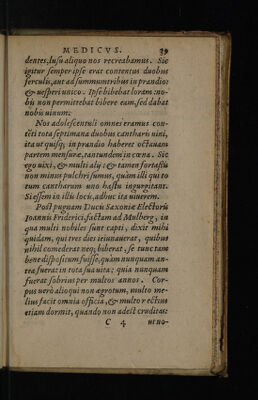 MEDICVS. 39
dentes, lusu aliquo nos recreabamus. Sic
igitur semper ipse erat contentus duobus
ferculis, aut ad summum tribus in prandio:
& uesperi unico. Ipse bibebat loram: no-
bis non permittebat bibere eam, sed dabat
nobis uinum.
Nos adolescentuli omnes eramus con-
tẽti tota septimana duobus cantharis uini,
ita ut quisq; in prandio haberet octauam
partem mensuræ, tantundem in cœna. Sic
ego uixi, & multi alij: & tamen fortasse
non minus pulchri sumus, quàm illi qui to
tum cantharum uno haustu ingurgitant.
Si essem in illis locis, adhuc ita uiuerem.
Post pugnam Ducis Saxoniæ Electoris
Ioannis Friderici, factam ad Mulberg, in
qua multi nobiles sunt capti, dixit mihi
quidam, qui tres dies ieiunauerat, quibus
nihil comederat neq; biberat, se tunc tam
bene dispositum fuisse, quàm nunquam an-
tea fuerat in tota sua uita: quia nunquam
fuerat sobrius per multos annos. Cor-
pus uerò alioqui non ægrotum, multo me-
lius facit omnia officia, & multo rectius
etiam dormit, quando non adest cruditas:
C 4 ut no-